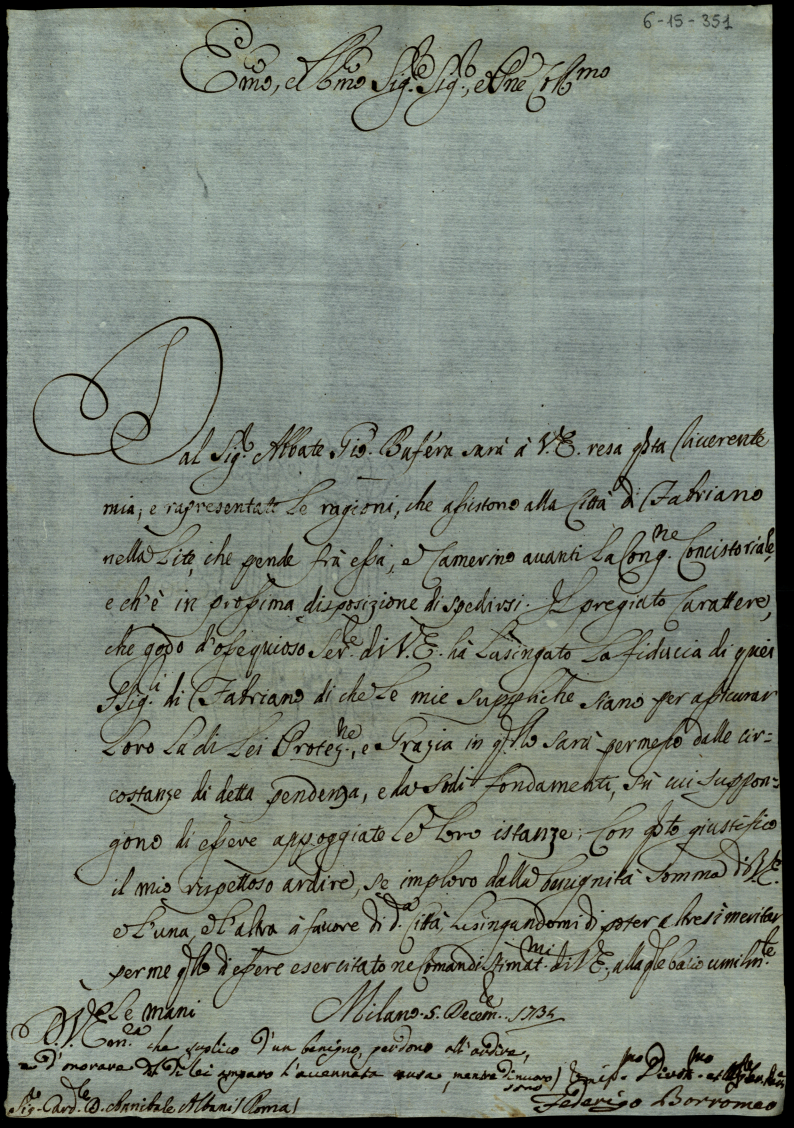 6-15-351
Emo, e Rmo Sig.re Sig.re, e Pne Colmo
Dal Sig.r Abbate Gio. Bufera sarà à V.E. resa qsta Riverente
mia, e rapresentate le ragioni, che assistono alla Città di Fabriano
nella Lite, che pende frà essa, e Camerino avanti la Cong.ne Concistoriale,
e ch'è in prossima disposizione di spedirsi. Il pregiato Carattere,
che godo d'ossequioso Ser.re di V.E. hà Lusingato la fiducia di quei
SSig.i di Fabriano di che le mie suppliche siano per assicurar
Loro la di Lei Protez.ne, e Grazia in qllo sarà permesso dalle cir=
costanze di detta pendenza, e da sodi fondamenti, sù cui suppon=
gono di essere appoggiate le Loro istanze: Con qsto giustifico
il mio rispettoso ardire, se imploro dalla benignità somma di V.E.
e l'una, e l'altra à favore di d.a Città, Lusingandomi di poter altresì meritar
per me qllo d'essere esercitato ne Comandi stimat.mi di V.E., alla qle bacio umilm.te
Le mani Milano. 5. Decem.e 1734
D.V.Em.za che suplico d'un benigno perdono all'ardire,
e d'onorare del di lei amparo l'accennata causa, mentre di nuovo sono
Umiss.mo Divot.mo et
Sig.r Card.le D. Annibale Albani (Roma) Federigo Borromeo